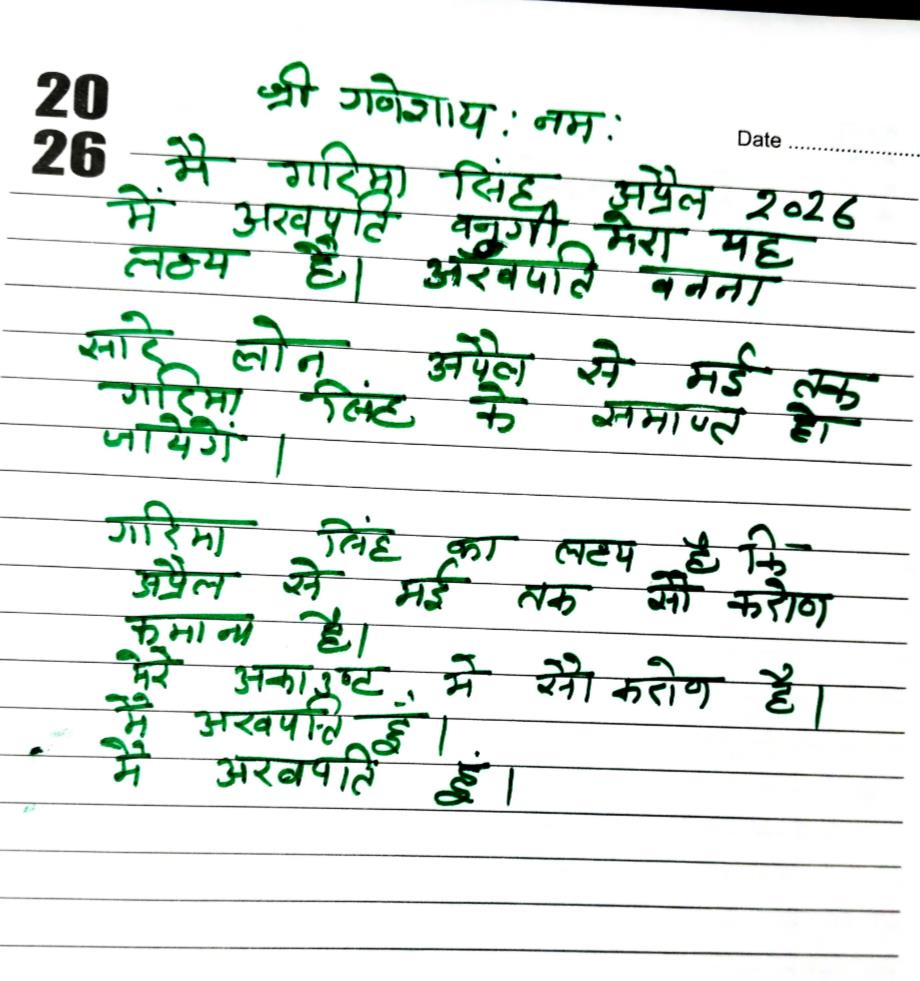 20
26
Date
श्री गणेशाय: नम:
मै गरिमा सिंह अप्रैल 2026
में अरवपति बनुगी मेरा यह
लक्ष्य है। अरवपति बनना
सारे लोन अप्रैल से मई तक
गरिमा सिंह के समाप्त हो
जायेगें ।
गरिमा सिंह का लक्ष्य है कि
अप्रैल से मई तक सौ करोण
कमाना है।
मेरे अकाउण्ट में सौ करोण है।
मै अरवपति हूं ।
मै अरवपति हूं ।